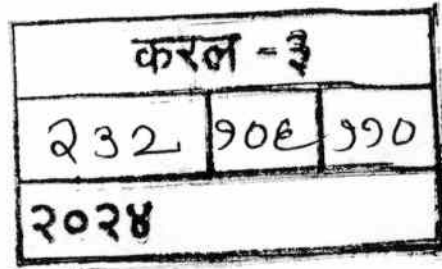 करल - ३
२३२ १०६ ११०
२०२४